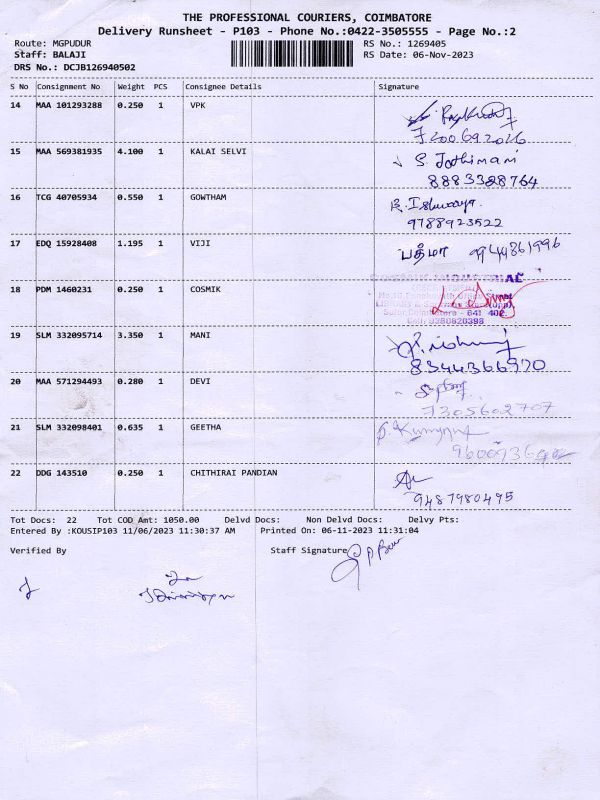 THE PROFESSIONAL COURIERS, COIMBATORE
Delivery Runsheet - P103 - Phone No.:0422-3505555 - Page No.:2
Route: MGPUDUR
Staff: BALAJI
DRS No.: DCJB126940502
RS No.: 1269405
RS Date: 06-Nov-2023
S No Consignment No Weight PCS Consignee Details Signature
14 MAA 101293288 0.250 1 VPK
15 MAA 569381935 4.100 1 KALAI SELVI S. Jothimani
8883328764
16 TCG 40705934 0.550 1 GOWTHAM
9788923522
17 EDQ 15928408 1.195 1 VIJI பத்மா 9944861996
18 PDM 1460231 0.250 1 COSMIK
19 SLM 332095714 3.350 1 MANI
8344366970
20 MAA 571294493 0.280 1 DEVI
7305602707
21 SLM 332098401 0.635 1 GEETHA
22 DDG 143510 0.250 1 CHITHIRAI PANDIAN
9487980495
Tot Docs: 22 Tot COD Amt: 1050.00 Delvd Docs: Non Delvd Docs: Delvy Pts:
Entered By :KOUSIP103 11/06/2023 11:30:37 AM Printed On: 06-11-2023 11:31:04
Verified By Staff Signature